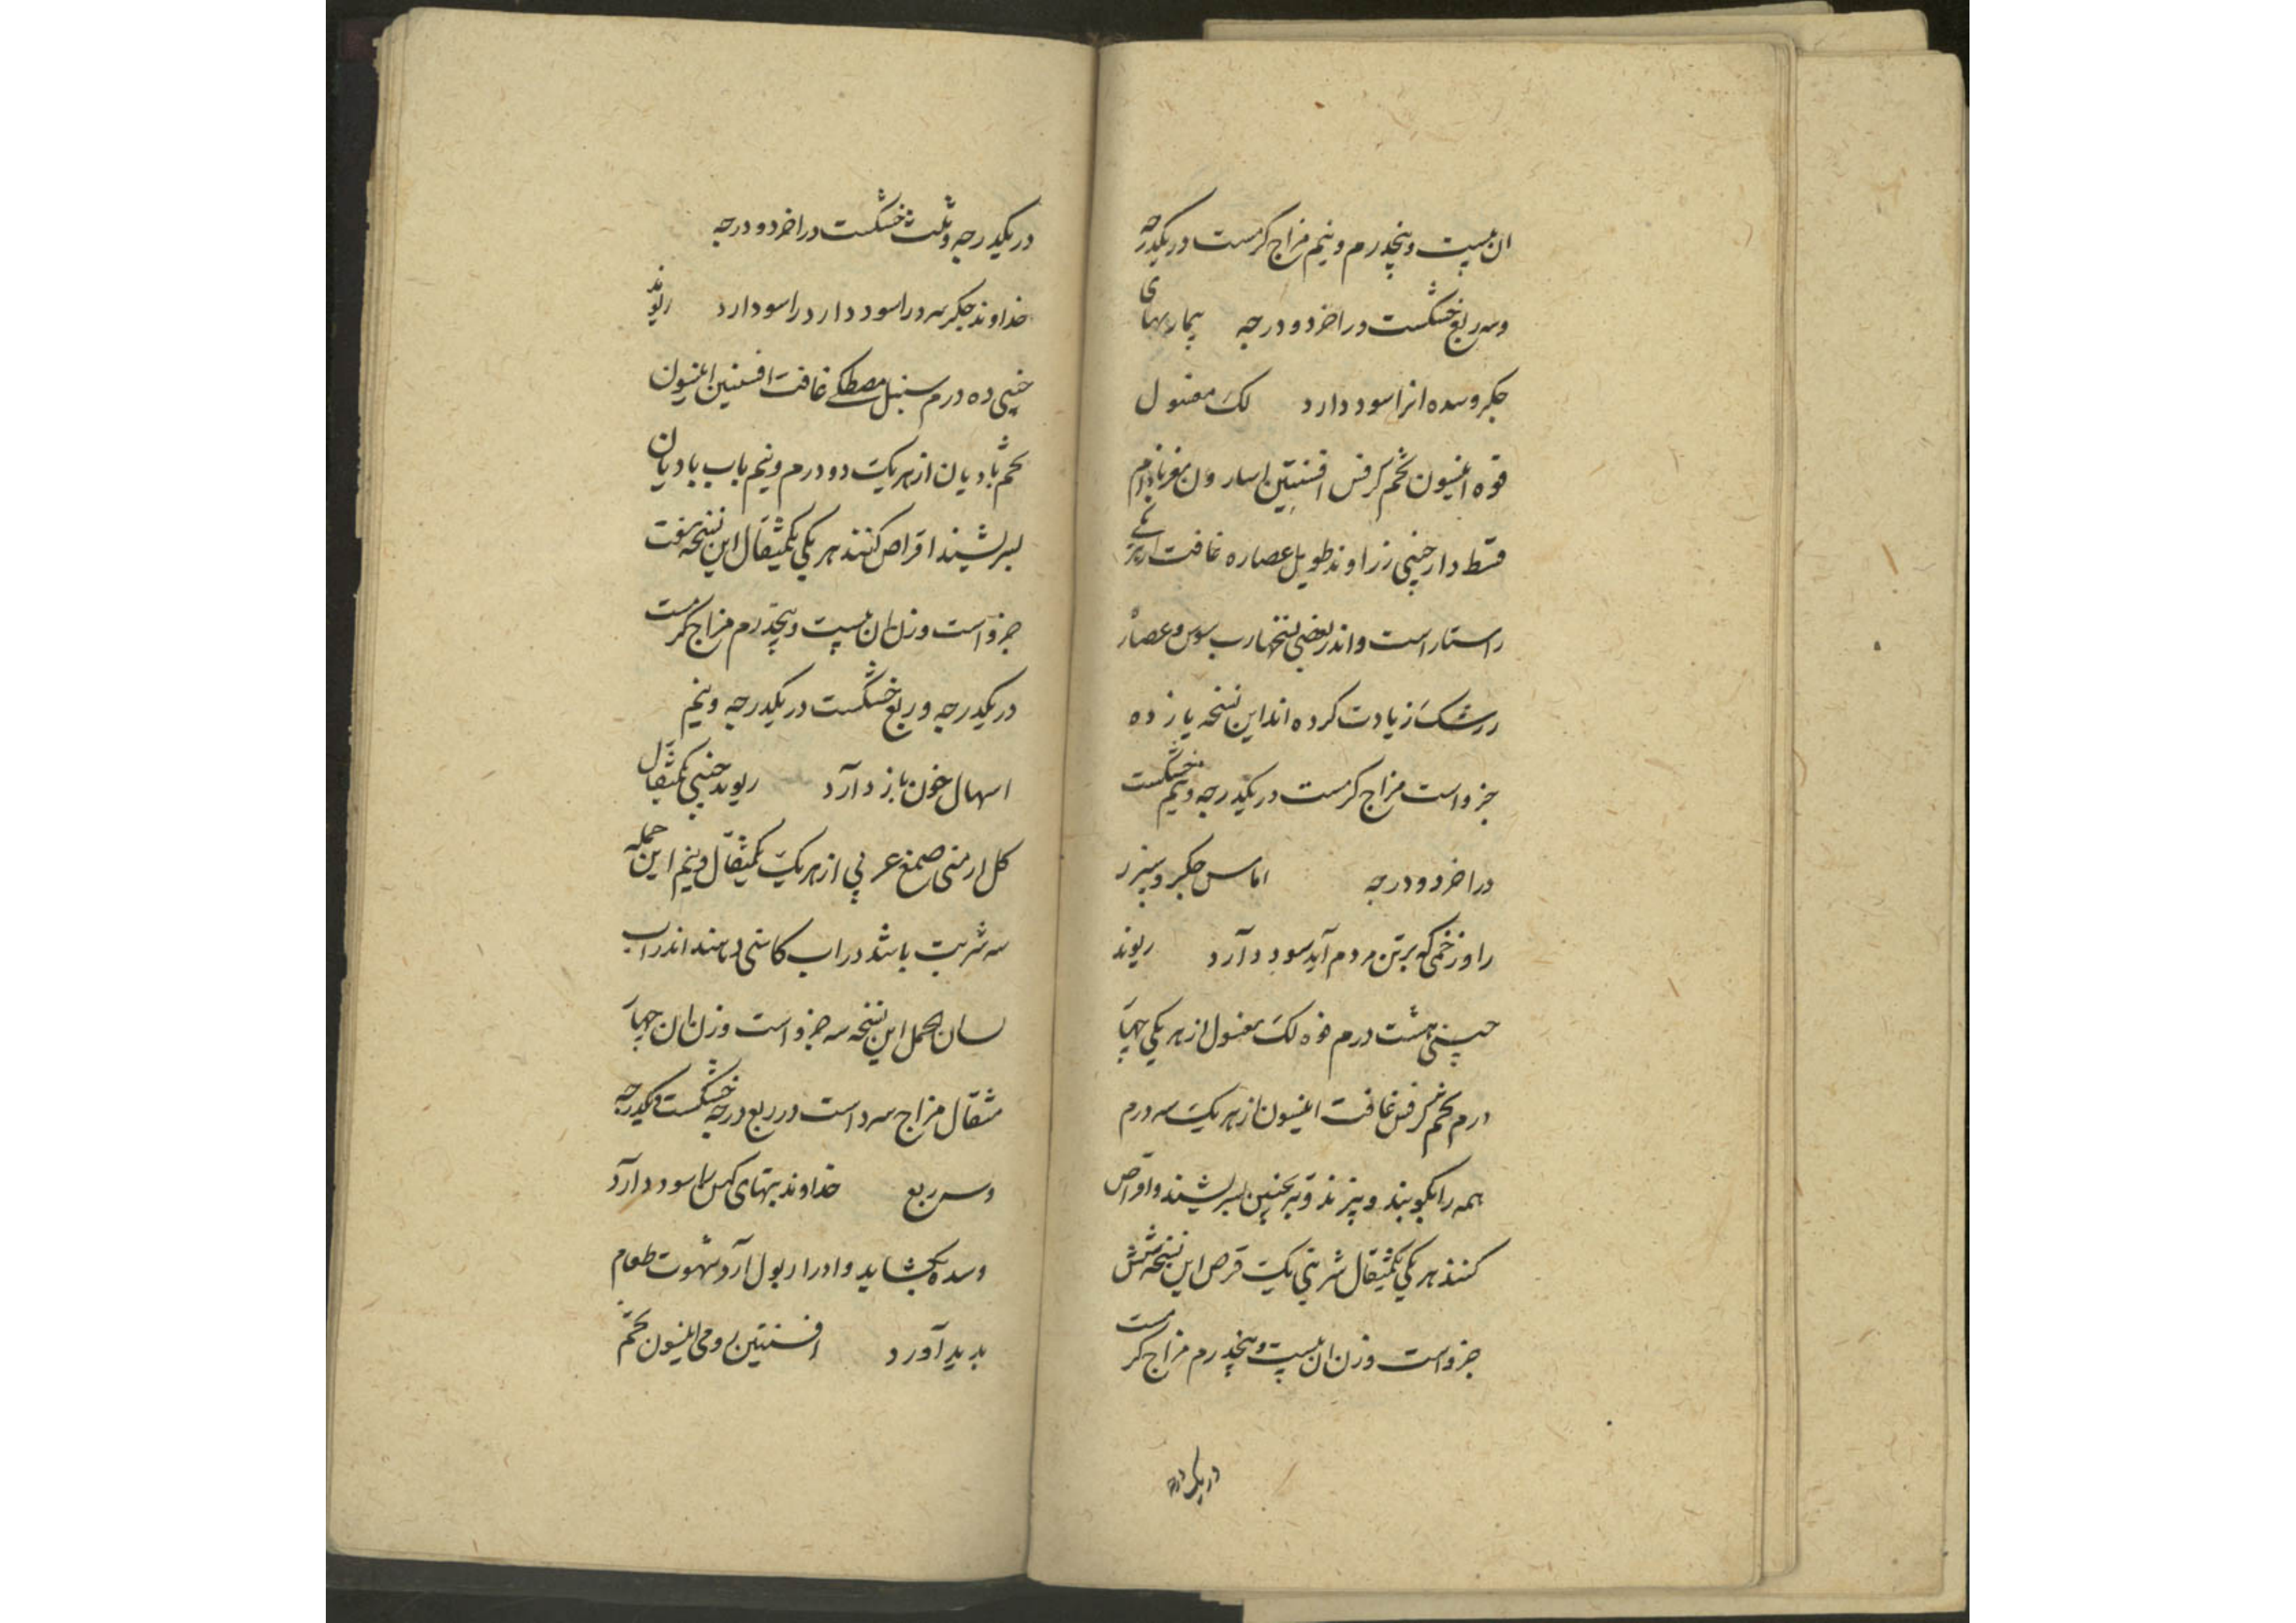 ان بیست و پنجدرم و نیم مزاج کرمست در یکدرجه
و سه ربع خشکست در اخر دو درجه بیماریهای
جکر و سده انرا سود دارد لک مغسول
فوه انیسون تخم کرفس افسنتین اسارون مغز بادام
قسط دارچینی زراوند طویل عصاره غافت از هر یکی
راستار است و اندر بعضی نسختها رب سوس و عصاره
زرشک زیادت کرده اند این نسخه یازده
جزو است مزاج کرمست در یکدرجه و نیم خشکست
در اخر دو درجه اماس جکر و سپرز
را و زخمی که بر تن مردم آید سود دآرد ریوند
چینی هشت درم فوه لک مغسول از هر یکی چهار
درم تخم کرفس غافت انیسون از هر یک سه درم
همه را بکوبند و بپزند و بسرشند و اقراص
کنند هر یکی یکمثقال شربتی یک قرص این نسخه شش
جزو است وزن ان بیست و پنجدرم مزاج کرمست
در یکدرجه
در یکدرجه و ثلث خشکست در اخر دو درجه
خداوند جکر سرد را سود دارد را سود ارد ریوند
چینی ده درم سنبل مصطکی غافت افسنتین انیسون
تخم بادیان از هر یک دو درم و نیم باب بادیان
بسرشند اقراص کنند هر یکی یکمثقال این نسخه هفت
جزو است وزن ان بیست و پنجدرم مزاج کرمست
در یکدرجه و ربع خشکست در یکدرجه و نیم
اسهال خون باز دآرد ریوند چینی یکمثقال
کل ارمنی صمغ عربی از هر یک یکمثقال و نیم این جمله
سه شربت باشد در اب کاسنی دهند اندر اب
لسان الحمل این نسخه سه جزو است وزن ان چهار
مثقال مزاج سرد است در ربع درجه خشکست در یکدرجه
و سه ربع خداوند تبهای کهن را سود دارد
و سده بکشاید و ادرار بول آرد شهوت طعام
بدید آورد افسنتین رومی انیسون تخم